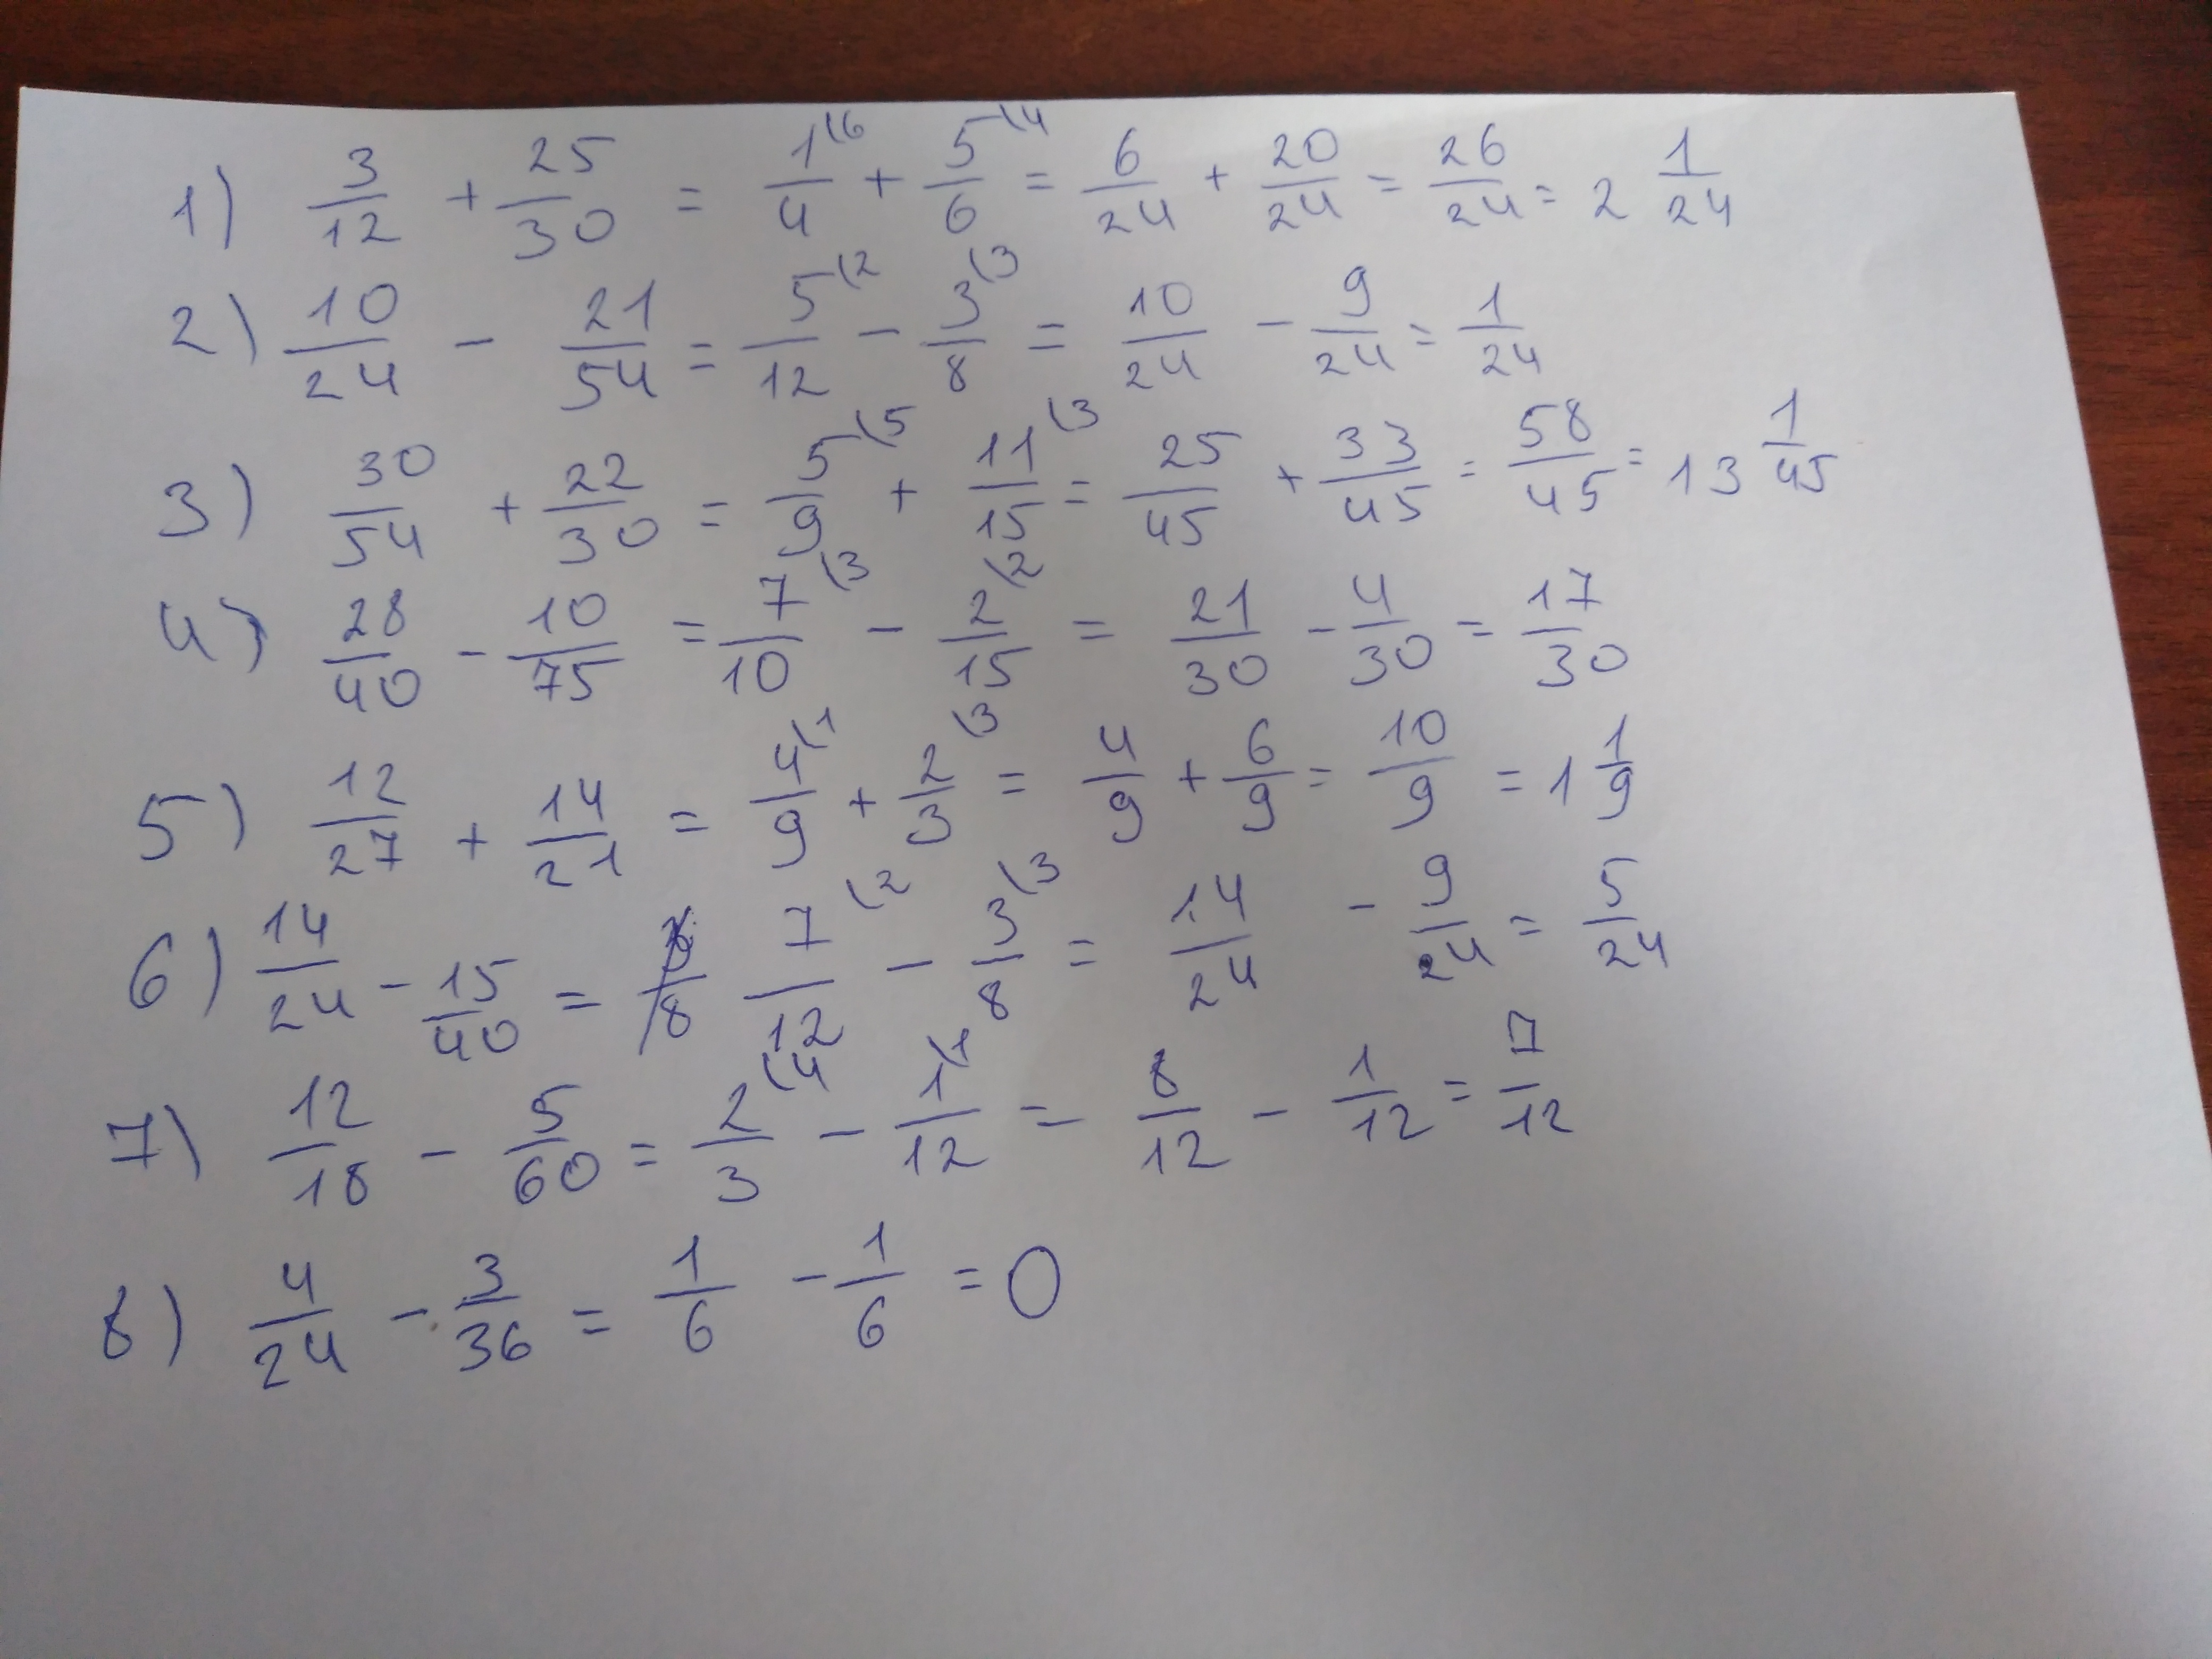 1) 3/12 + 25/30 = 1/4 \6 + 5/6 \4 = 6/24 + 20/24 = 26/24 = 2 1/24
2) 10/24 - 21/54 = 5/12 \2 - 3/8 \3 = 10/24 - 9/24 = 1/24
3) 30/54 + 22/30 = 5/9 \5 + 11/15 \3 = 25/45 + 33/45 = 58/45 = 13 1/45
4) 28/40 - 10/75 = 7/10 \3 - 2/15 \2 = 21/30 - 4/30 = 17/30
5) 12/27 + 14/21 = 4/9 \1 + 2/3 \3 = 4/9 + 6/9 = 10/9 = 1 1/9
6) 14/24 - 15/40 = 7/12 \2 - 3/8 \3 = 14/24 - 9/24 = 5/24
7) 12/18 - 5/60 = 2/3 \4 - 1/12 \1 = 8/12 - 1/12 = 7/12
8) 4/24 - 3/36 = 1/6 - 1/6 = 0